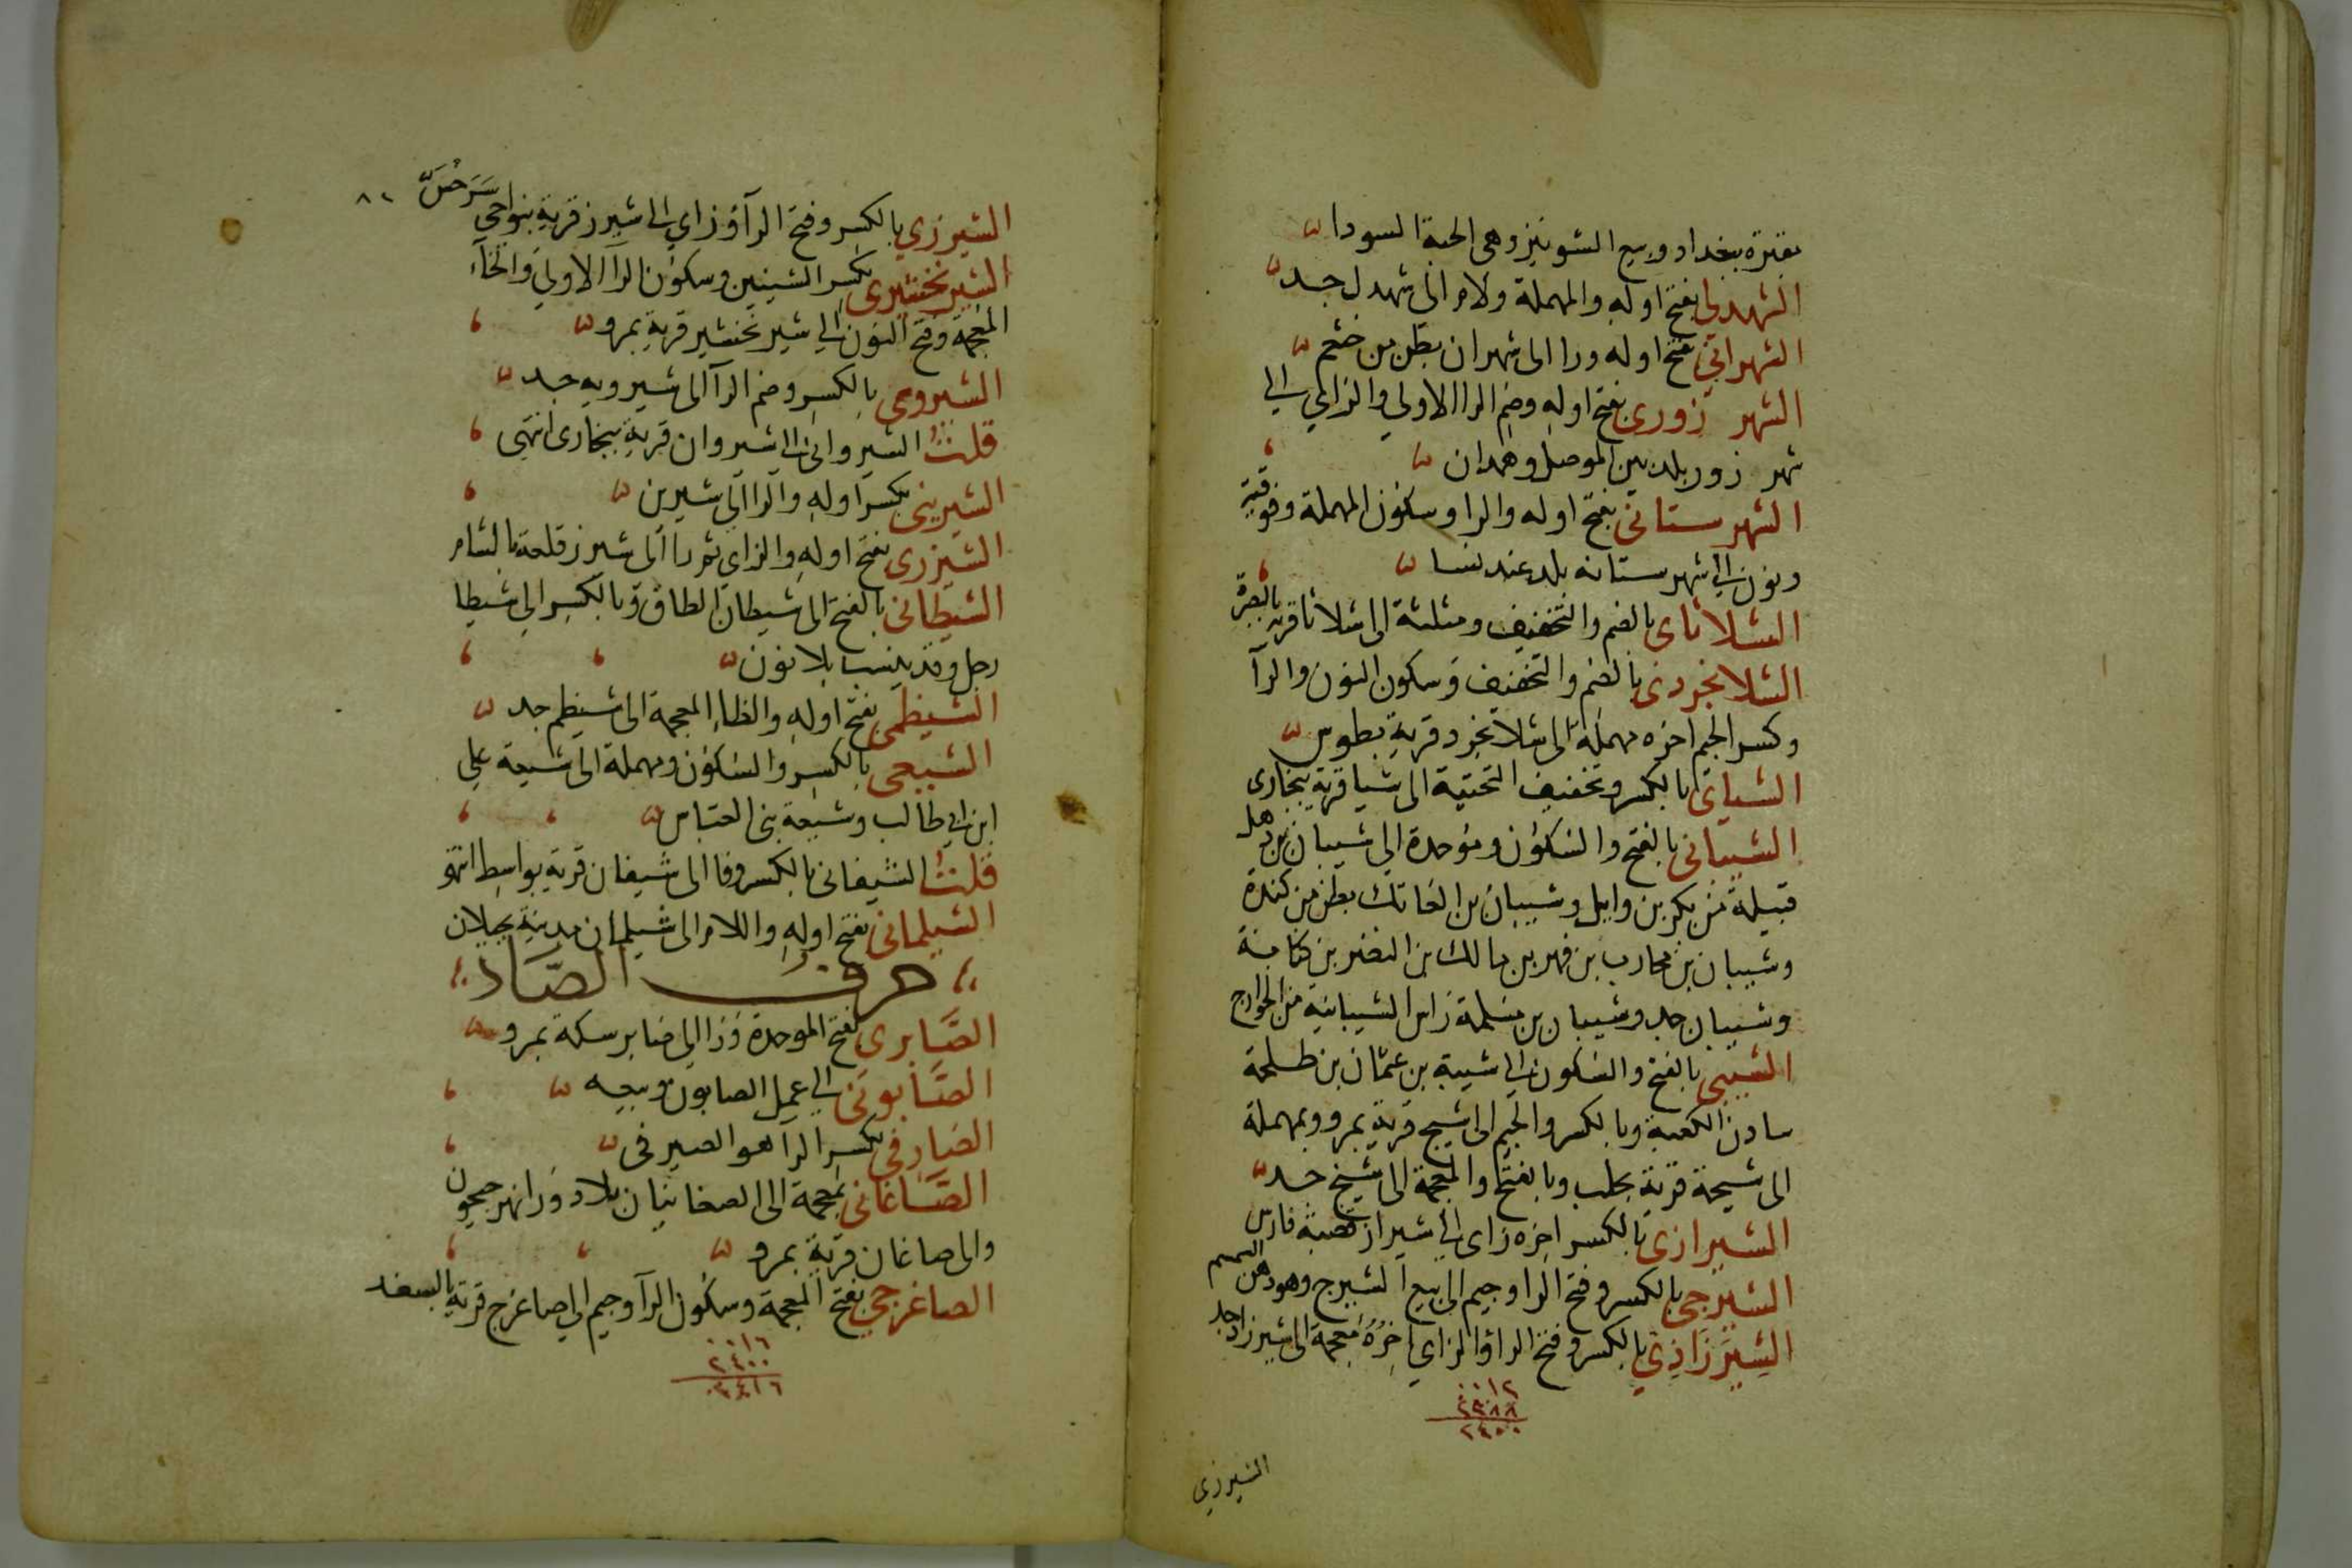 بمقبرة ببغداد وبيع الشونيز وهى الحبة السودا
الشهدلى بفتح اوله والمهملة ولام الى شهدل جد
الشهرانى بفتح اوله ورا الى شهران بطن من خثعم
الشهر زورى بفتح اوله وضم الرا الاولى والزاي الى
شهر زور بلد بين الموصل وهمدان
الشهرستانى بفتح اوله والرا وسكون المهملة وفوقية
ونون الى شهرستانه بلد عند نسا
الشلاثاى بالضم والتخفيف ومثلثة الى شلاثا قرية بالبصرة
الشلانجردى بالضم والتخفيف وسكون النون والرآ
وكسر الجيم اخره مهملة الى شلانجرد قرية بطوس
الشياى بالكسر وتخفيف التحتية الى شيا قرية ببخارى
الشيبانى بالفتح والسكون وموحدة الى شيبان بن ذهل
قبيلة من بكر بن وايل وشيبان بن العاتك بطن من كندة
وشيبان بن محارب بن فهر بن مالك بن النضر بن كنانة
وشيبان جد وشيبان بن سلمة راس الشيبانية من الخوارج
الشيبى بالفتح والسكون الى شيبة بن عثمان بن طلحة
سادن الكعبة وبالكسر والجيم الى شيج قرية بمرو وبمهملة
الى شيحة قرية بحلب وبالفتح والمعجمة الى شيخ جد
الشيرازى بالكسر اخره زاى الى شيراز قصبة فارس
الشيرجى بالكسر وفتح الرا وجيم الى بيع الشيرج وهو دهن السمسم
الشيرزاذي بالكسر وفتح الرا والزاي اخره معجمة الى شيرزاد جد
٠٠١٢
٢٣٨٨
٢٤٠٠
الشيرزي
٨٢
الشيرزي بالكسر وفتح الرآ وزاي الى شيرز قرية بنواحي سرخس
الشيرنخشيرى بكسر الشينين وسكون الرا الاولى والخآء
المعجمة وفتح النون الى شيرنخشير قرية بمرو
الشيرويى بالكسر وضم الرآ الى شيرويه جد
قلت الشيروانى الى شيروان قرية ببخارى انتهى
الشيرينى بكسر اوله والرا الى شيرين
الشيزرى بفتح اوله والزاى ثم را الى شيزر قلعة بالشام
الشيطانى بالفتح الى شيطان الطاق وبالكسر الى شيطا
رجل وقد ينسب بلا نون
الشيظمى بفتح اوله والظاء المعجمة الى شيظم جد
الشيعى بالكسر والسكون ومهملة الى شيعة علي
ابن ابى طالب وشيعة بنى العباس
قلت الشيفانى بالكسر وفا الى شيفان قرية بواسط انتهى
الشيلمانى بفتح اوله واللام الى شيلمان مدينة بجيلان
حرف الصاد
الصابرى بفتح الموحدة ورا الى صابر سكة بمرو
الصابونى الى عمل الصابون وبيعه
الصارفي بكسر الرا هو الصيرفى
الصاغانى بمعجمة الى الصغانيان بلاد ورا نهر جيحون
والى صاغان قرية بمرو
الصاغرجي بفتح المعجمة وسكون الرآ وجيم الى صاغرج قرية بالسغد
٠٠١٦
٢٤٠٠
٢٤١٦